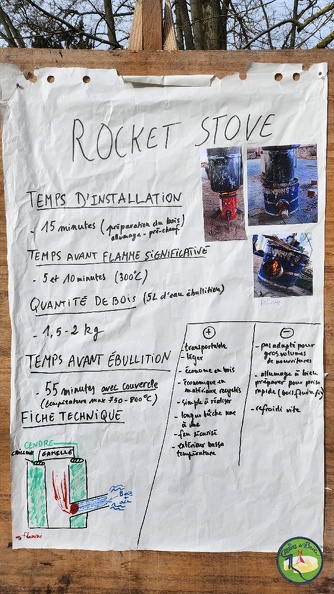 ROCKET STOVE
TEMPS D'INSTALLATION
- 15 minutes (préparation du bois)
allumage - préchauf
TEMPS AVANT FLAMME SIGNIFICATIVE
- 5 et 10 minutes (300°C)
QUANTITÉ DE BOIS (5L d'eau ébullition)
- 1,5-2 kg
TEMPS AVANT ÉBULLITION
- 55 minutes avec couvercle
(température max 750-800°C)
FICHE TECHNIQUE
CENDRE
GAMELLE
Bois
air
+
- transportable
- léger
- économe en bois
- économique en
matériaux recyclés
- simple à réaliser
- longue bûche une
à une
- feu sécurisé
- extérieur basse
température
-
- pas adapté pour
gros volumes
de nourritures
- allumage à bien
préparer pour prise
rapide (bois fin)
- refroidi vite